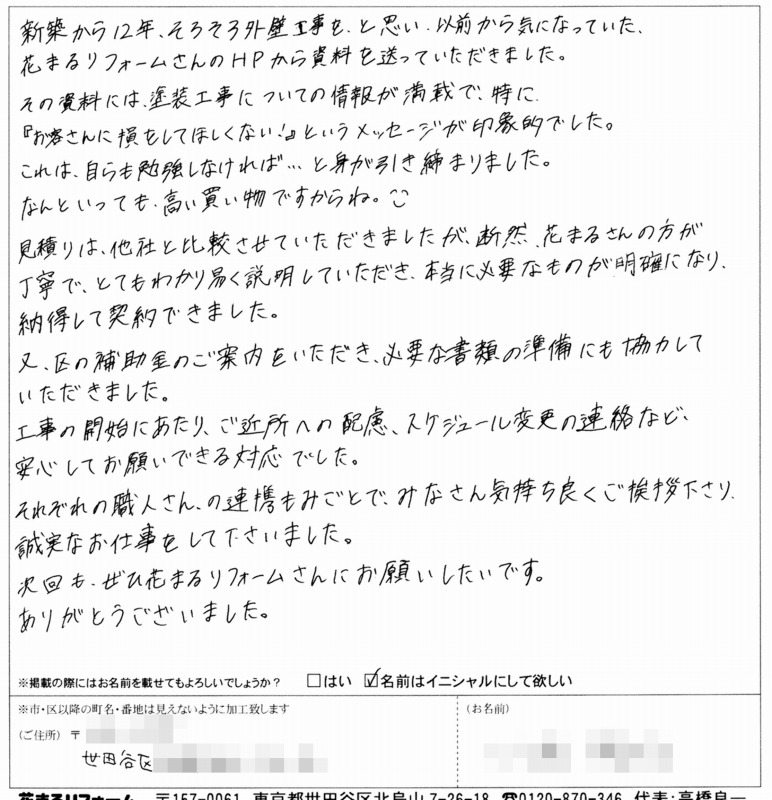 新築から12年、そろそろ外壁工事を、と思い、以前から気になっていた、
花まるリフォームさんのHPから資料を送っていただきました。
その資料には、塗装工事についての情報が満載で、特に、
『お客さんに損をしてほしくない!』というメッセージが印象的でした。
これは、自らも勉強しなければ…と身が引き締まりました。
なんといっても、高い買い物ですからね。
見積りは、他社と比較させていただきましたが、断然、花まるさんの方が
丁寧で、とてもわかり易く説明していただき、本当に必要なものが明確になり、
納得して契約できました。
又、区の補助金のご案内をいただき、必要な書類の準備にも協力して
いただきました。
工事の開始にあたり、ご近所への配慮、スケジュール変更の連絡など、
安心してお願いできる対応でした。
それぞれの職人さん、の連携もみごとで、みなさん気持ち良くご挨拶下さり、
誠実なお仕事をして下さいました。
次回も、ぜひ花まるリフォームさんにお願いしたいです。
ありがとうございました。
※掲載の際にはお名前を載せてもよろしいでしょうか? □はい ☑名前はイニシャルにして欲しい
※市・区以降の町名・番地は見えないように加工致します (お名前)
(ご住所) 〒
世田谷区
花まるリフォーム 〒157-0061 東京都世田谷区北烏山7-26-18 ☎0120-870-346 代表:高橋良一